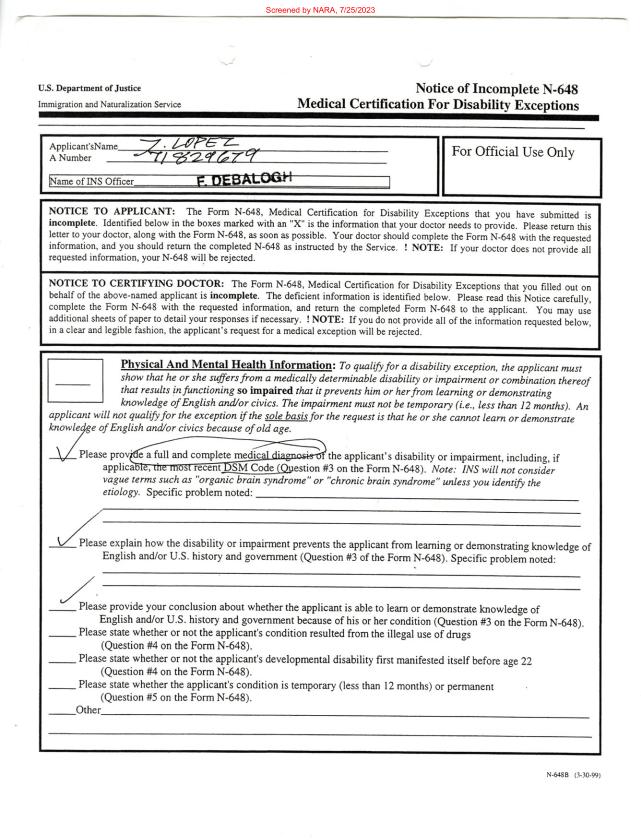 Screened by NARA, 7/25/2023
U.S. Department of Justice
Immigration and Naturalization Service
Notice of Incomplete N-648
Medical Certification For Disability Exceptions
Applicant'sName J. LOPEZ
A Number 71829679
Name of INS Officer F. DEBALOGH
For Official Use Only
NOTICE TO APPLICANT: The Form N-648, Medical Certification for Disability Exceptions that you have submitted is
incomplete. Identified below in the boxes marked with an "X" is the information that your doctor needs to provide. Please return this
letter to your doctor, along with the Form N-648, as soon as possible. Your doctor should complete the Form N-648 with the requested
information, and you should return the completed N-648 as instructed by the Service. ! NOTE: If your doctor does not provide all
requested information, your N-648 will be rejected.
NOTICE TO CERTIFYING DOCTOR: The Form N-648, Medical Certification for Disability Exceptions that you filled out on
behalf of the above-named applicant is incomplete. The deficient information is identified below. Please read this Notice carefully,
complete the Form N-648 with the requested information, and return the completed Form N-648 to the applicant. You may use
additional sheets of paper to detail your responses if necessary. ! NOTE: If you do not provide all of the information requested below,
in a clear and legible fashion, the applicant's request for a medical exception will be rejected.
Physical And Mental Health Information: To qualify for a disability exception, the applicant must
show that he or she suffers from a medically determinable disability or impairment or combination thereof
that results in functioning so impaired that it prevents him or her from learning or demonstrating
knowledge of English and/or civics. The impairment must not be temporary (i.e., less than 12 months). An
applicant will not qualify for the exception if the sole basis for the request is that he or she cannot learn or demonstrate
knowledge of English and/or civics because of old age.
Please provide a full and complete medical diagnosis of the applicant's disability or impairment, including, if
applicable, the most recent DSM Code (Question #3 on the Form N-648). Note: INS will not consider
vague terms such as "organic brain syndrome" or "chronic brain syndrome" unless you identify the
etiology. Specific problem noted:
Please explain how the disability or impairment prevents the applicant from learning or demonstrating knowledge of
English and/or U.S. history and government (Question #3 of the Form N-648). Specific problem noted:
Please provide your conclusion about whether the applicant is able to learn or demonstrate knowledge of
English and/or U.S. history and government because of his or her condition (Question #3 on the Form N-648).
Please state whether or not the applicant's condition resulted from the illegal use of drugs
(Question #4 on the Form N-648).
Please state whether or not the applicant's developmental disability first manifested itself before age 22
(Question #4 on the Form N-648).
Please state whether the applicant's condition is temporary (less than 12 months) or permanent
(Question #5 on the Form N-648).
Other
N-648B (3-30-99)